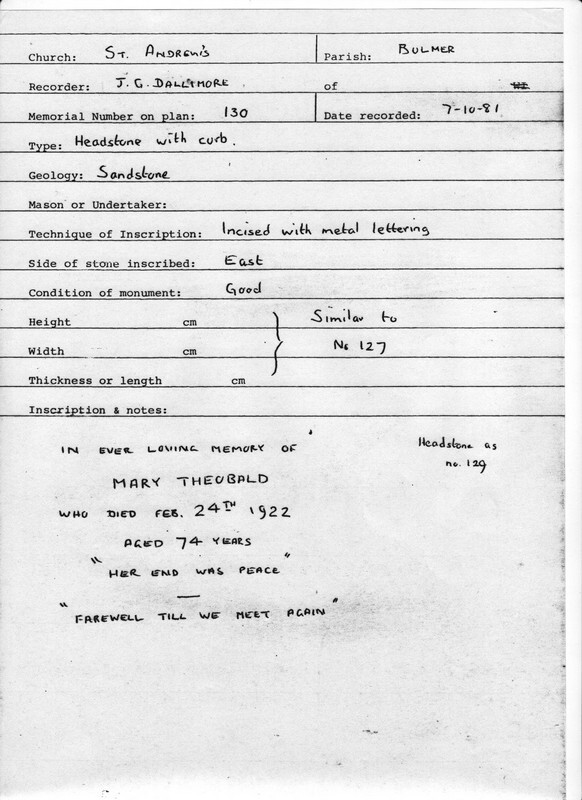 Church: St. Andrew's Parish: BULMER
Recorder: J. G. DALLIMORE of
Memorial Number on plan: 130 Date recorded: 7-10-81
Type: Headstone with curb.
Geology: Sandstone
Mason or Undertaker:
Technique of Inscription: Incised with metal lettering
Side of stone inscribed: East
Condition of monument: Good
Height cm Similar to
Width cm No 127
Thickness or length cm
Inscription & notes:
IN EVER LOVING MEMORY OF Headstone as
no. 129
MARY THEOBALD
WHO DIED FEB. 24TH 1922
AGED 74 YEARS
"HER END WAS PEACE"
"FAREWELL TILL WE MEET AGAIN"